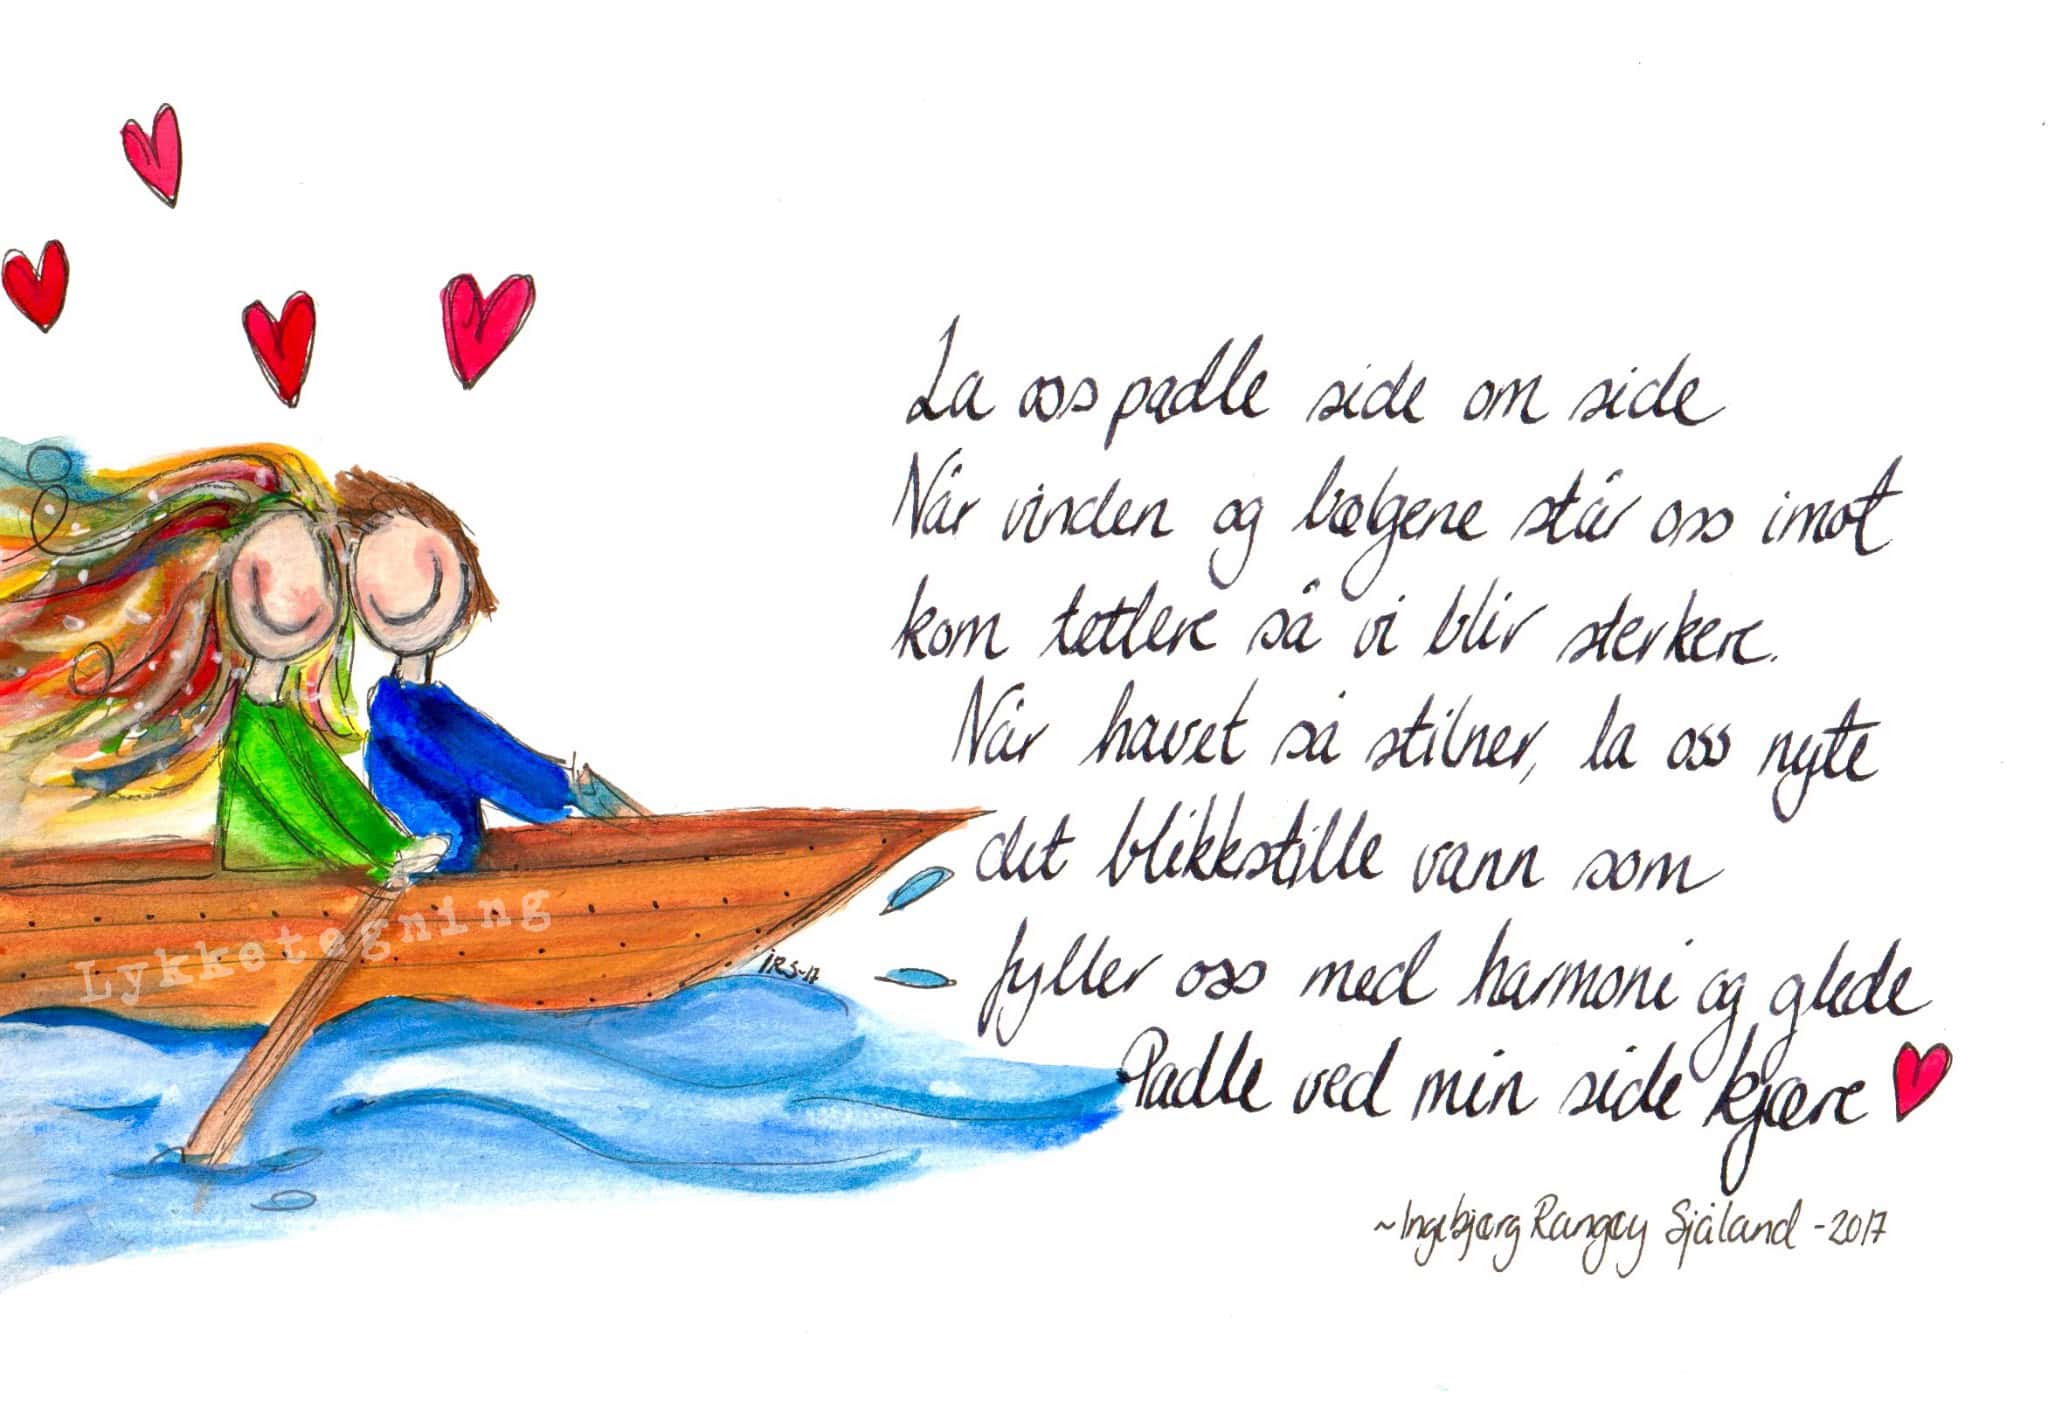 La oss padle side om side
Når vinden og bølgene står oss imot
kom tettere så vi blir sterkere.
Når havet så stilner, la oss nyte
det blikkstille vann som
fyller oss med harmoni og glede
Padle ved min side kjære
~Ingebjørg Rangøy Sjåland -2017
Lykketegning
IRS-17